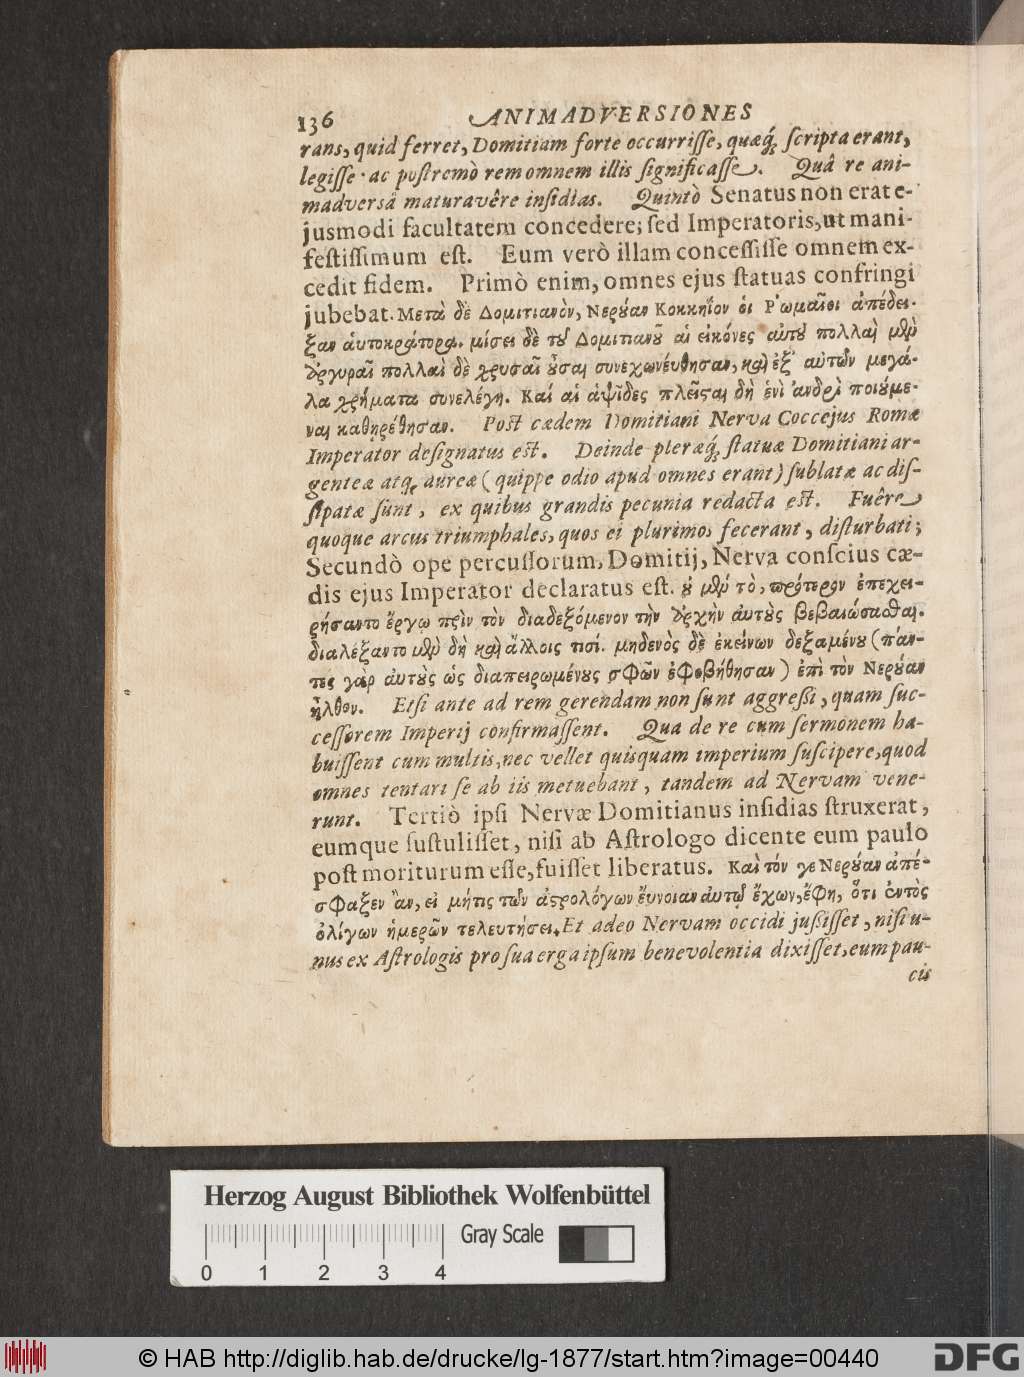 136 ANIMADVERSIONES
rans, quid ferret, Domitiam forte occurriſſe, quæq́; ſcripta erant,
legiſſe · ac poſtremò rem omnem illis ſignificaſſe. Quâ re ani-
madversâ maturavêre inſidias. Quintò Senatus non erat e-
jusmodi facultatem concedere; ſed Imperatoris, ut mani-
feſtiſſimum eſt. Eum verò illam conceſſiſſe omnem ex-
cedit fidem. Primò enim, omnes ejus ſtatuas confringi
jubebat. Μετὰ δὲ Δομιτιανὸν, Νερούαν Κοκκηῖον ὁι Ῥωμαῖοι ἀπέδει-
ξαν ἀυτοκράτορα. μίσει δὲ τοῦ Δομιτιανοῦ αἱ εἰκόνες αὐτοῦ πολλαὶ μὲν
ἀργυραῖ πολλαὶ δὲ χρυσαῖ οὖσαι συνεχωνέυθησαν, καὶ ἐξ αὐτῶν μεγά-
λα χρήματα συνελέγη. Καί αἱ ἁψῖδες πλεῖσται δὴ ἑνὶ ἀνδρὶ ποιούμε-
ναι καθῃρέθησαν. Poſt cædem Domitiani Nerva Coccejus Romæ
Imperator deſignatus eſt. Deinde pleræq́; ſtatuæ Domitiani ar-
genteæ atq; aureæ (quippe odio apud omnes erant) ſublatæ ac diſ-
ſipatæ ſunt, ex quibus grandis pecunia redacta eſt. Fuêre
quoque arcus triumphales, quos ei plurimos fecerant, diſturbati;
Secundò ope percuſſorum, Domitij, Nerva conſcius cæ-
dis ejus Imperator declaratus eſt. οὐ μὲν τὸ, πρότερον ἐπεχει-
ρήσαντο ἔργῳ πρὶν τὸν διαδεξόμενον τὴν ἀρχὴν ἀυτοὺς βεβαιώσασθαι.
διαλέξαντο μὲν δὴ καὶ ἄλλοις τισί. μηδενὸς δὲ ἐκείνων δεξαμένου (πάν-
τες γαρ ἀυτοὺς ὡς διαπειρωμένους σφῶν ἐφοβήθησαν) ἐπὶ τὸν Νερούαν
ἦλθον. Etſi ante ad rem gerendam non ſunt aggreßi, quam ſuc-
ceſſorem Imperij confirmaſſent. Qua de re cum ſermonem ha-
buiſſent cum multis, nec vellet quisquam imperium ſuſcipere, quod
omnes tentari ſe ab iis metuebant, tandem ad Nervam vene-
runt. Tertiò ipſi Nervæ Domitianus inſidias ſtruxerat,
eumque ſuſtuliſſet, niſi ab Aſtrologo dicente eum paulo
poſt moriturum eſſe, fuiſſet liberatus. Καὶ τόν γε Νερούαν ἀπέ-
σφαξεν ἂν, εἰ μήτις τῶν ἀστρολόγων ἔυνοιαν ἀυτῷ ἔχων, ἔφη, ὅτι ἐντὸς
ὀλίγων ἡμερῶν τελευτήσει. Et adeo Nervam occidi jußiſſet, niſi u-
nus ex Aſtrologis pro ſua erga ipſum benevolentia dixiſſet, eum pau-
cis
Herzog August Bibliothek Wolfenbüttel
Gray Scale
0 1 2 3 4
© HAB http://diglib.hab.de/drucke/lg-1877/start.htm?image=00440
DFG